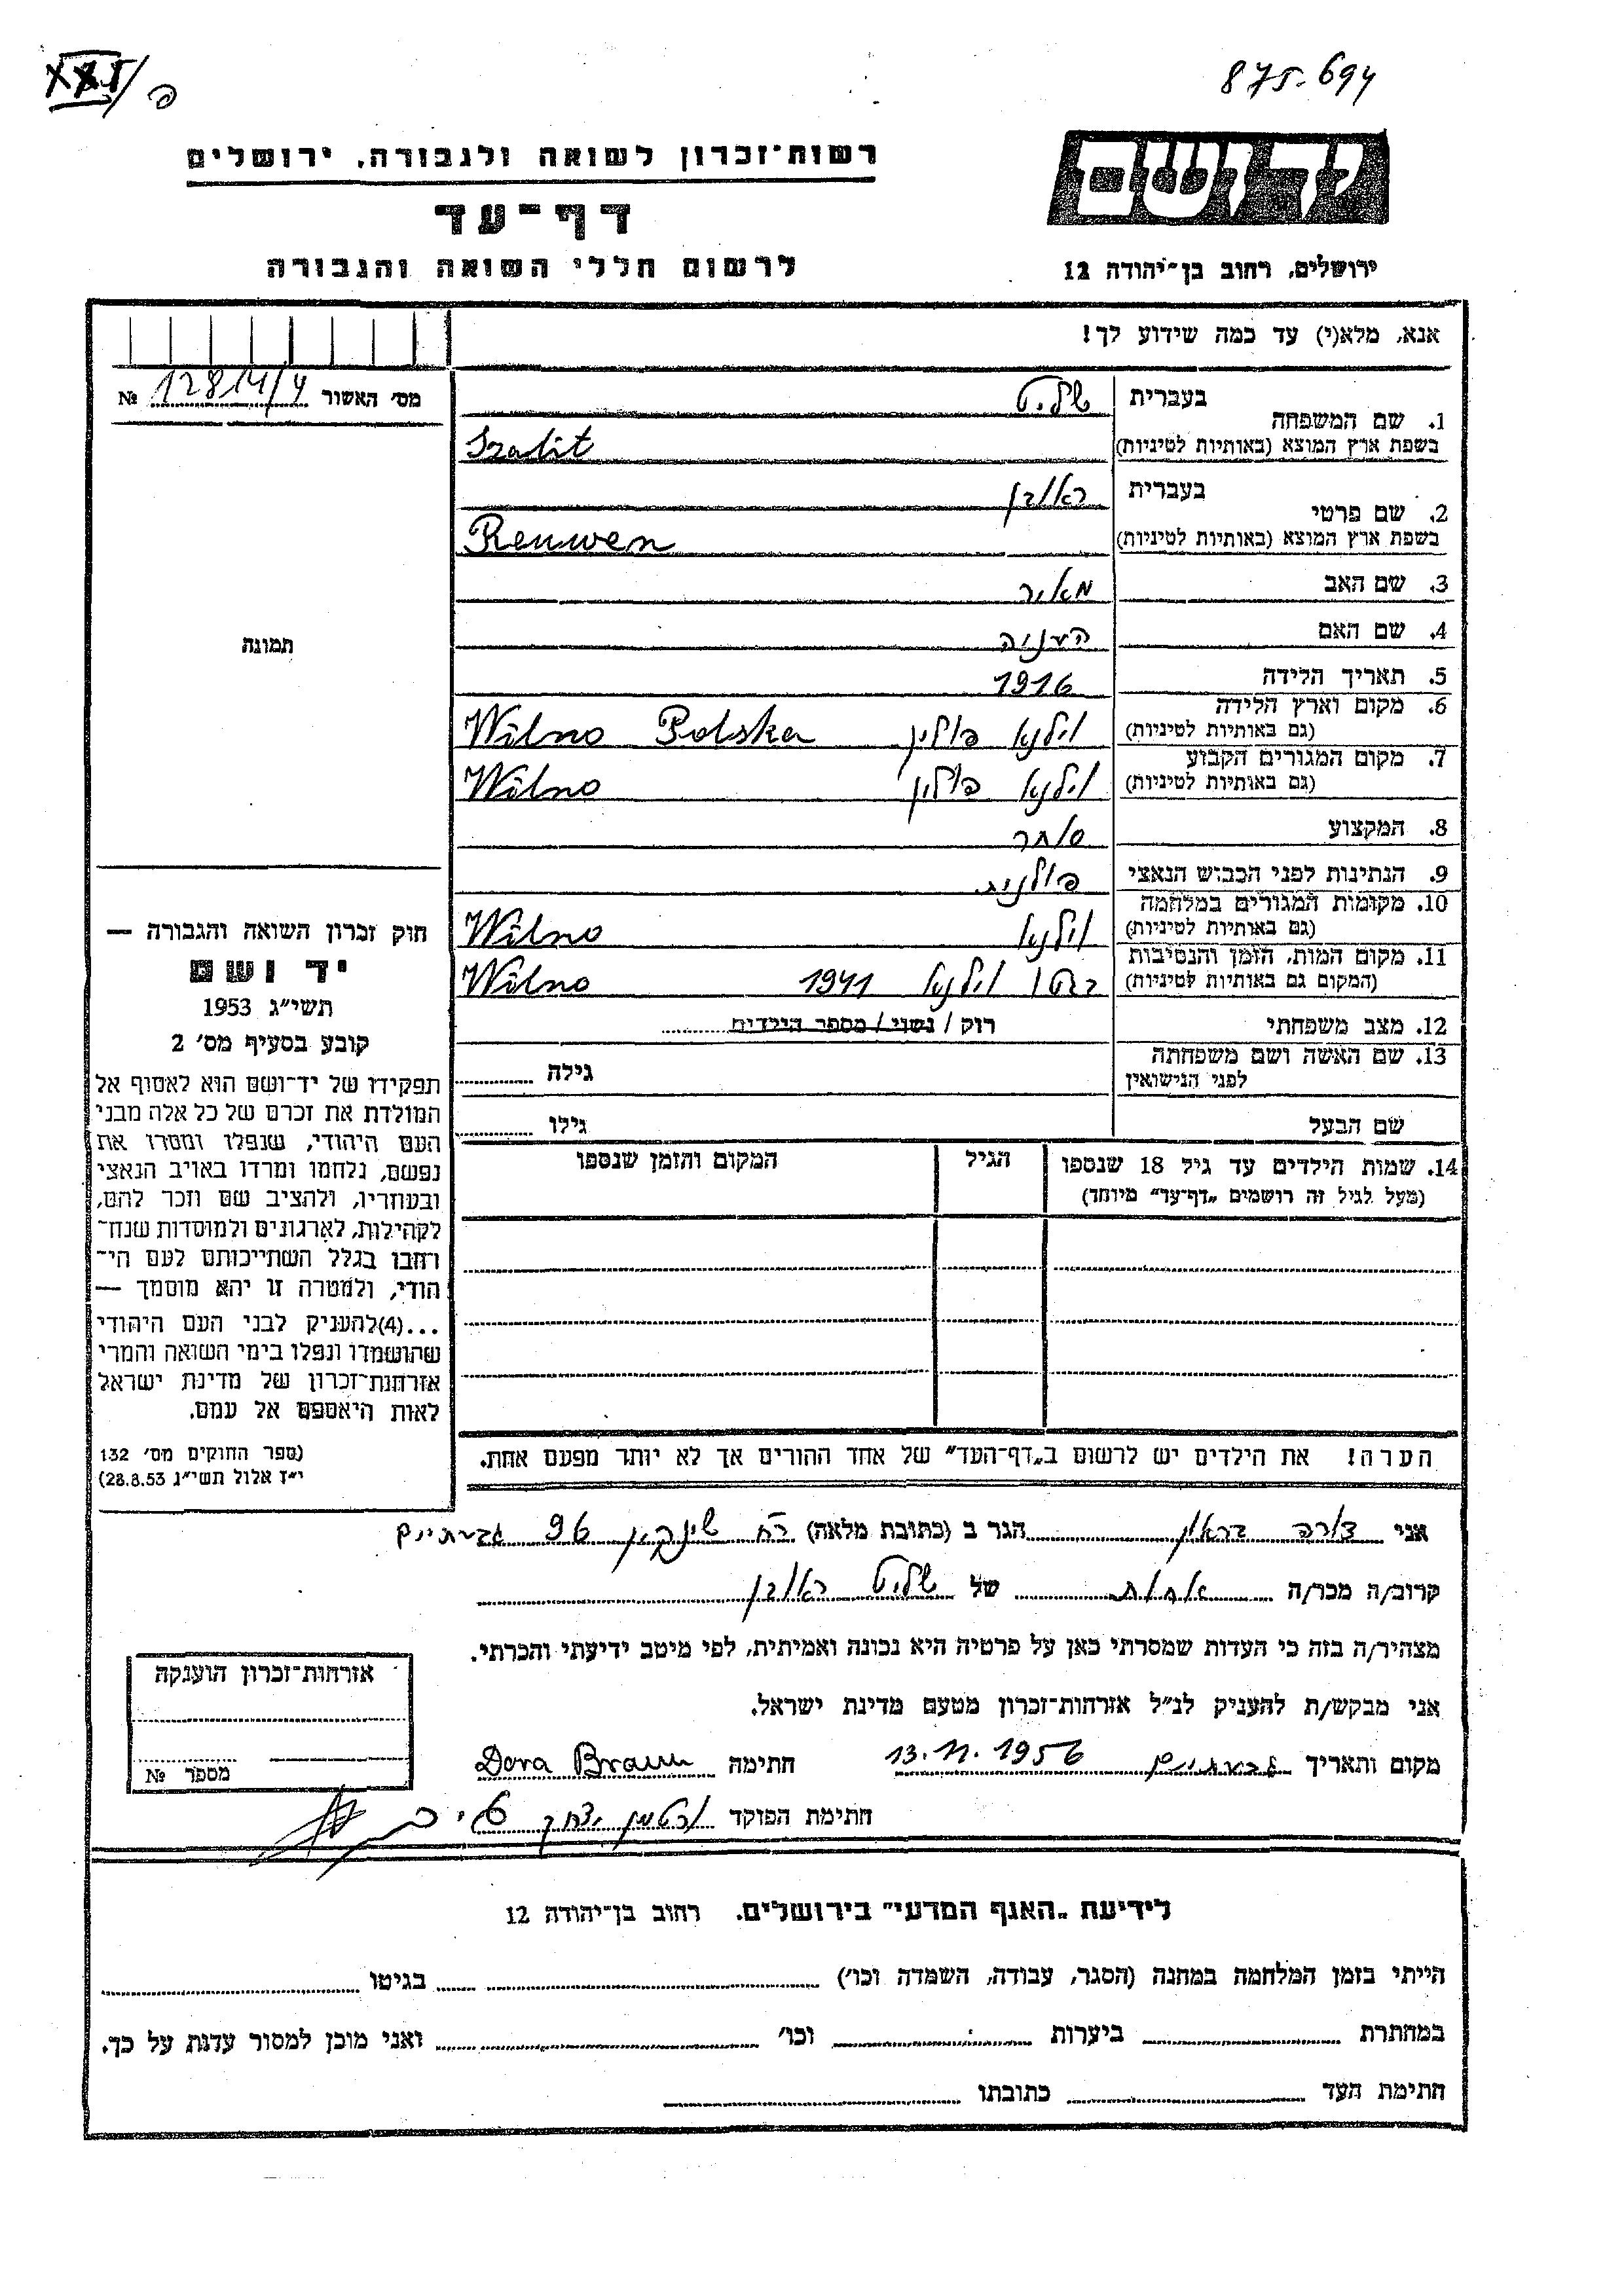 875-694
יד ושם
רשות־זכרון לשואה ולגבורה, ירושלים
דף־עד
לרשום חללי השואה והגבורה
ירושלים, רחוב בן־יהודה 12
אנא, מלא(י) עד כמה שידוע לך!
מס׳ האשור 12814/4 №
1. שם המשפחה
בעברית שליט
בשפת ארץ המוצא (באותיות לטיניות) Szalit
2. שם פרטי
בעברית ראובן
בשפת ארץ המוצא (באותיות לטיניות) Reuwen
3. שם האב מאיר
4. שם האם
5. תאריך הלידה 1916
6. מקום וארץ הלידה
(גם באותיות לטיניות) וילנא פולין Wilno Polska
7. מקום המגורים הקבוע
(גם באותיות לטיניות) וילנא פולין Wilno
8. המקצוע סוחר
9. הנתינות לפני הכבוש הנאצי פולנית
10. מקומות המגורים במלחמה
(גם באותיות לטיניות) וילנא Wilno
11. מקום המות, הזמן והנסיבות
(המקום גם באותיות לטיניות) בגטו וילנא 1941 Wilno
12. מצב משפחתי רוק / נשוי / מספר הילדים
13. שם האשה ושם משפחתה
לפני הנישואין גילה
שם הבעל גילו
14. שמות הילדים עד גיל 18 שנספו הגיל המקום והזמן שנספו
(מעל לגיל זה רושמים „דף־עד" מיוחד)
הערה! את הילדים יש לרשום ב„דף־העד" של אחד ההורים אך לא יותר מפעם אחת.
תמונה
חוק זכרון השואה והגבורה —
יד ושם
תשי״ג 1953
קובע בסעיף מס׳ 2
תפקידו של יד־ושם הוא לאסוף אל
המולדת את זכרם של כל אלה מבני
העם היהודי, שנפלו ומסרו את
נפשם, נלחמו ומרדו באויב הנאצי
ובעוזריו, ולהציב שם וזכר להם,
לקהילות, לארגונים ולמוסדות שנח־
רחבו בגלל השתייכותם לעם הי־
הודי, ולמטרה זו יהא מוסמך —
...(4)להעניק לבני העם היהודי
שהושמדו ונפלו בימי השואה והמרי
אזרחות־זכרון של מדינת ישראל
לאות היאספם אל עמם.
(ספר החוקים מס׳ 132
י״ז אלול תשי״ג 28.8.53)
אני דורה בראון הגר ב (כתובת מלאה) רח שינקין 96 גבעתיים
קרוב/ה מכר/ה אחות של שליט ראובן
מצהיר/ה בזה כי העדות שמסרתי כאן על פרטיה היא נכונה ואמיתית, לפי מיטב ידיעתי והכרתי.
אני מבקש/ת להעניק לנ״ל אזרחות־זכרון מטעם מדינת ישראל.
מקום ותאריך גבעתיים 13.11.1956 חתימה Dora Braun
חתימת הפוקד יצחק
אזרחות־זכרון הוענקה
מספר №
לידיעת „האגף המדעי" בירושלים. רחוב בן־יהודה 12
הייתי בזמן המלחמה במחנה (הסגר, עבודה, השמדה וכו׳) בגיטו
במחתרת ביערות וכו׳ ואני מוכן למסור עדות על כך.
חתימת העד כתובתו